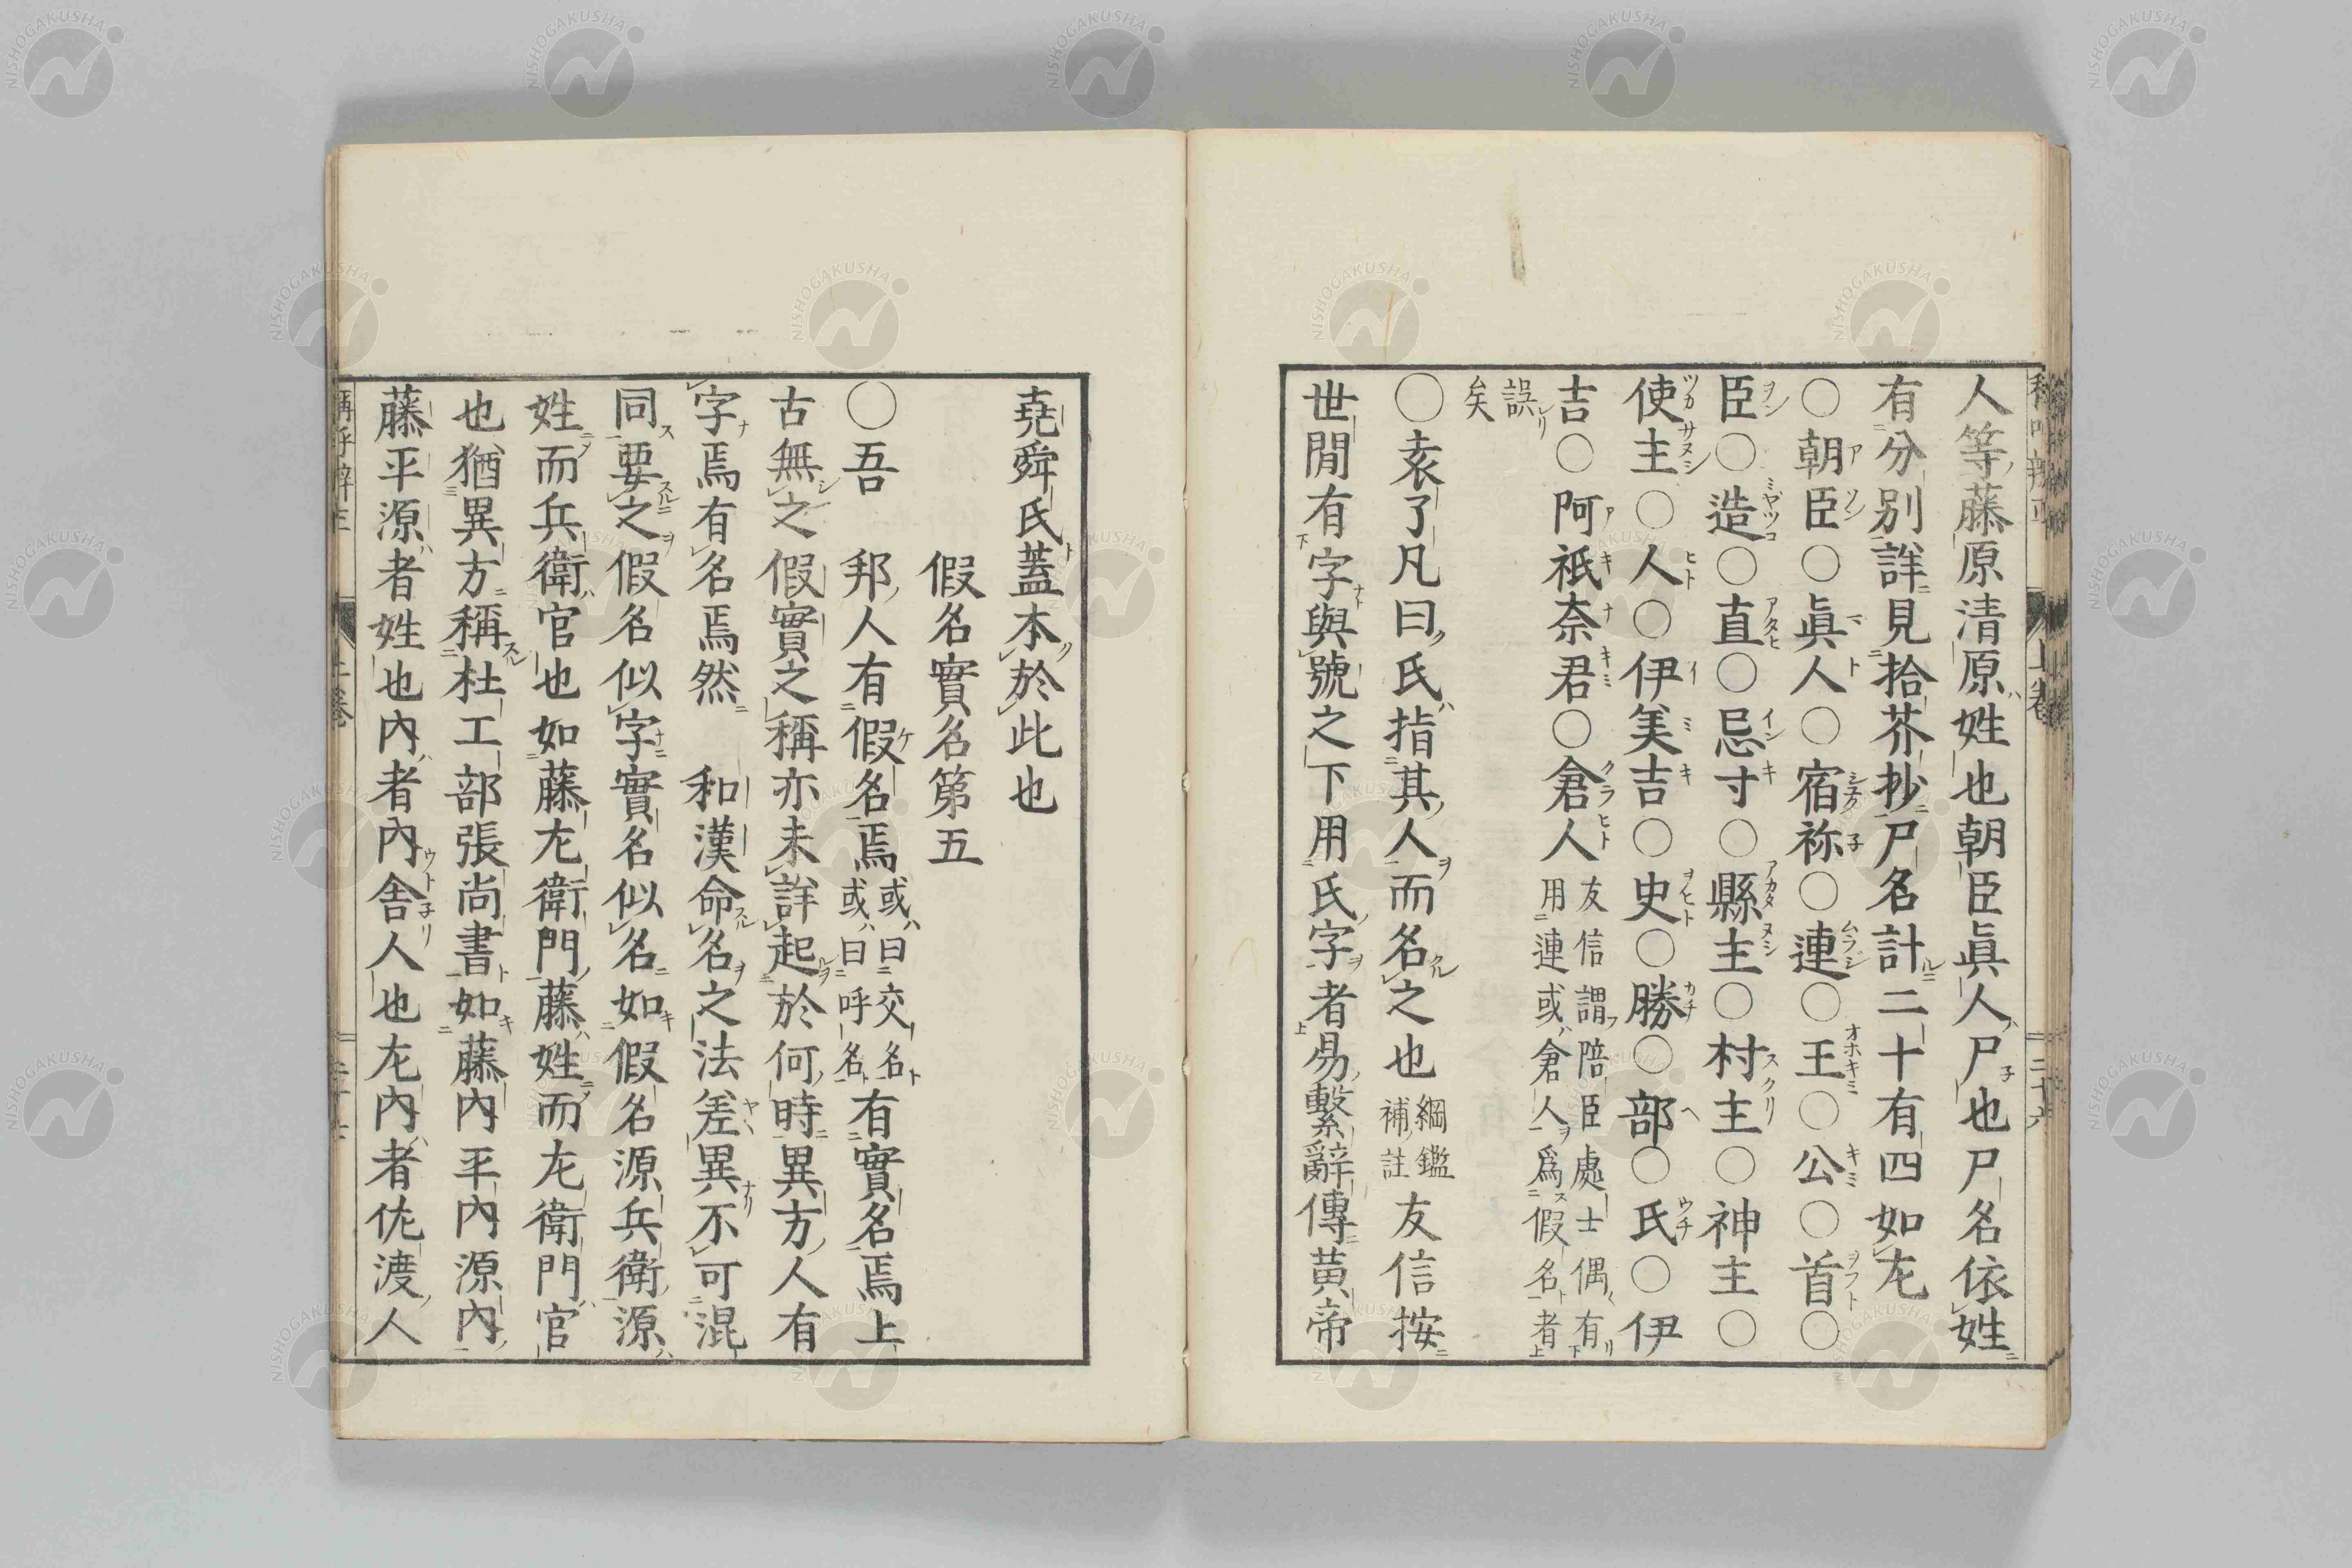 人等藤原清原姓也朝臣眞人尸也尸名依姓
有分別詳見拾芥抄尸名計二十有四如左
○朝臣○眞人○宿祢○連○王○公○首○
臣○造○直○忌寸○縣主○村主○神主○
使主○人○伊美吉○史○勝○部○氏○伊
吉○阿祇奈君○倉人友信謂陪臣處士偶有用連或倉人爲假名者
誤矣
○袁了凡曰氏指其人而名之也綱鑑補註友信按
世間有字與號之下用氏字者易繫辭傳黃帝
堯舜氏蓋本於此也
假名實名第五
○吾 邦人有假名焉或曰交名或曰呼名有實名焉上
古無之假實之稱亦未詳起於何時異方人有
字焉有名焉然 和漢命名之法差異不可混
同要之假名似字實名似名如假名源兵衛源
姓而兵衛官也如藤左衛門藤姓而左衛門官
也猶異方稱杜工部張尚書如藤內平內源內
藤平源者姓也內者內舍人也左內者佐渡人
上卷